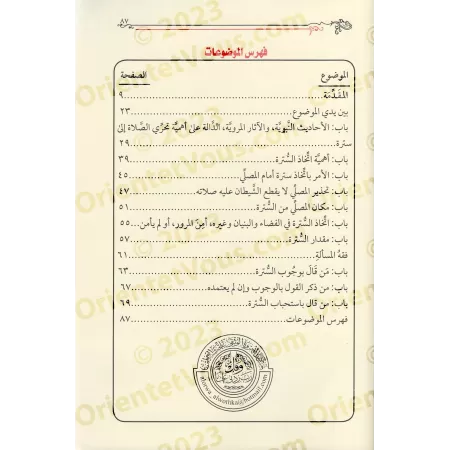 ٨٧
فهرس الموضوعات
الموضوع الصفحة
المقدِّمَة ٩
بين يدي الموضوع ٢٣
باب: الأحاديث النَّبويَّة، والآثار المرويَّة، الدَّالة على أهميَّة تحرِّي الصَّلاة إلى
سترة ٢٩
باب: أهميَّة اتِّخاذ السُّترة ٣٩
باب: الأمر باتِّخاذ سترة أمام المصلِّي ٤٥
باب: تحذير المصلِّي لا يقطع الشَّيطان عليه صلاته ٤٧
باب: مكان المصلِّي من السُّترة ٥١
باب: اتِّخاذ السُّترة في الفضاء والبنيان وغيره، أمِنَ المرور، أو لم يأمن ٥٥
باب: مقدار السُّترة ٥٧
فقهُ المسألةِ ٦١
باب: مَن قَالَ بوجُوب السُّترة ٦٣
باب: من ذكر القول بالوجوب وإن لم يعتمده ٦٧
باب: من قال باستحباب السُّترة ٦٩
فهرس الموضوعات ٨٧
alowa_alwathka@hotmail.com
© 2023
OrientetVous.com